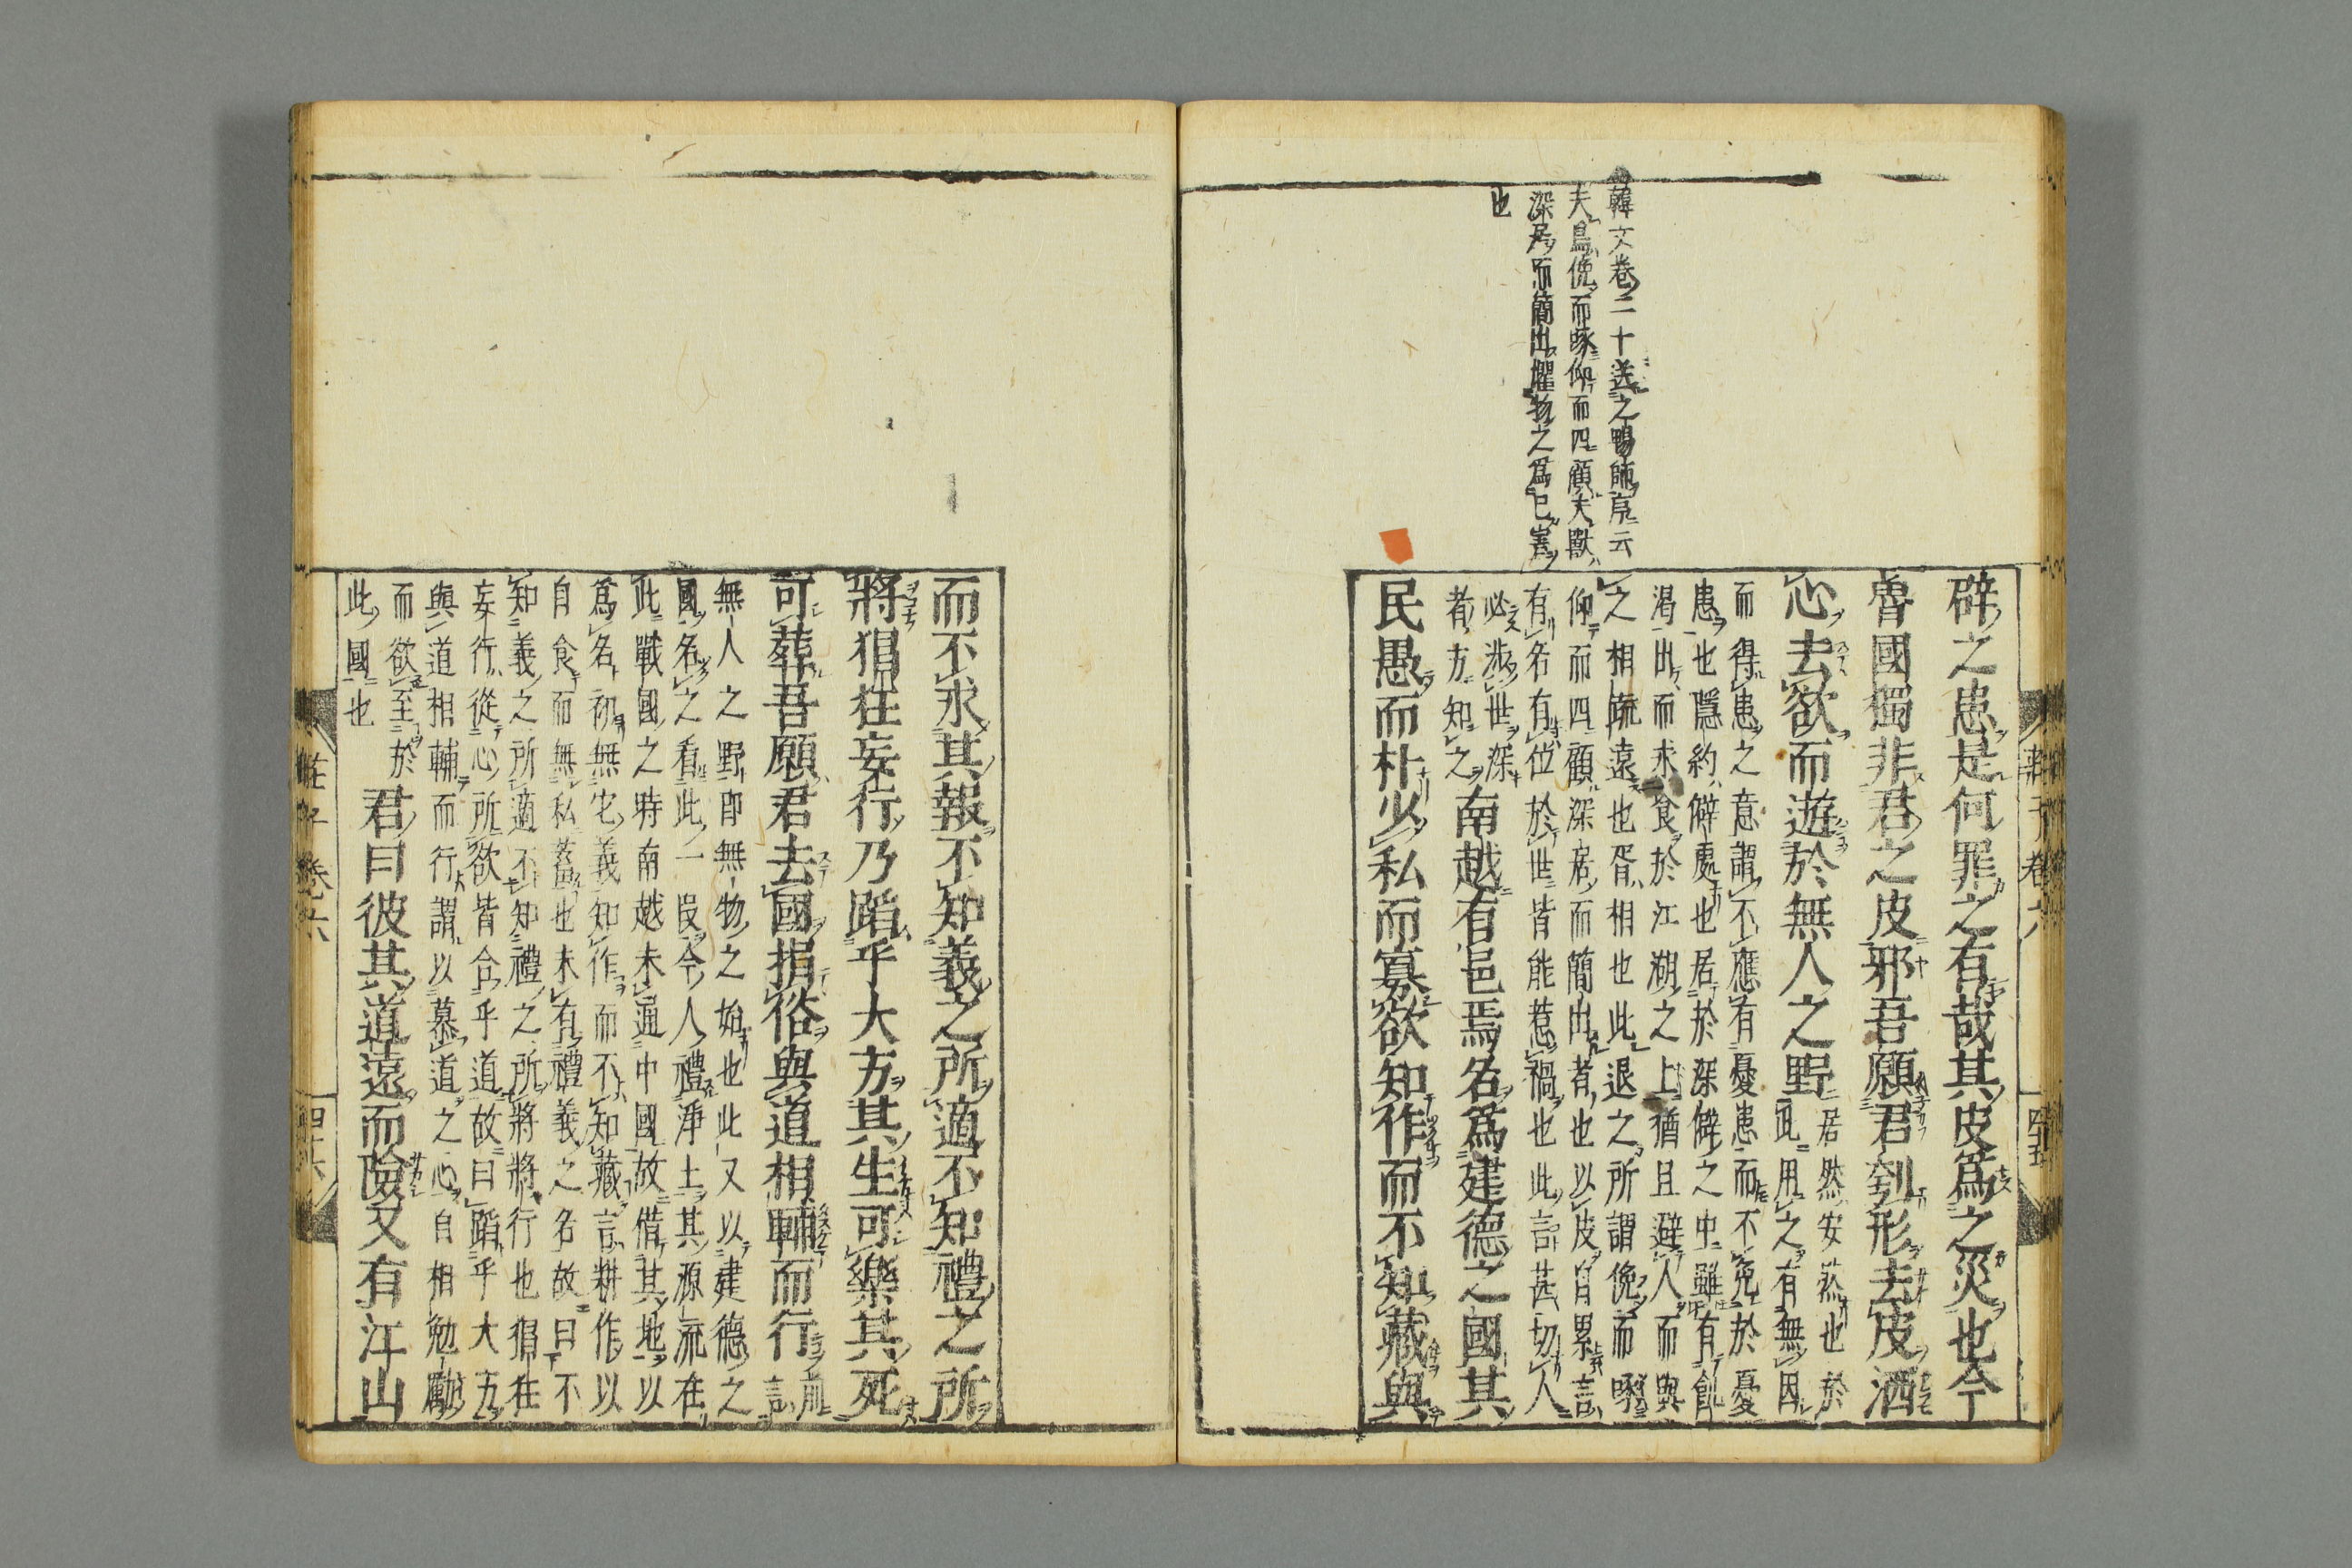 韓文卷二十送之暢師序云
夫鳥俛而啄仰而四顧夫獸
深居而簡出懼物之爲己害
也
辟之患是何罪之有哉其皮爲之災也今
魯國獨非君之皮邪吾願君刳形去皮洒
心去欲而遊於無人之野
居然安然也於
此用之有無因
而得患之意謂不應有憂患而不免於憂
患也隱約僻處也居於深僻之中雖有飢
渴出而未食於江湖之上猶且避人而與
之相疏遠也胥相也此退之所謂俛而啄
仰而四顧深居而簡出者也以皮自累言
有名有位於世皆能惹禍也此言甚切人
必涉世深
者方知之
南越有邑焉名爲建德之國其
民愚而朴少私而寡欲知作而不知藏與
莊子 卷六
四十五
而不求其報不知義之所適不知禮之所
將猖狂妄行乃蹈乎大方其生可樂其死
可葬吾願君去國捐俗與道相輔而行
前
言
無人之野即無物之始也此又以建德之
國名之看此一段今人禮淨土其源流在
此戰國之時南越未通中國故借其地以
爲名初無它義知作而不知藏言耕作以
自食而無私蓄也未有禮義之名故曰不
知義之所適不知禮之所將將行也猖狂
妄行從心所欲皆合乎道故曰蹈乎大方
與道相輔而行謂以慕道之心自相勉勵
而欲至於
此國也
君曰彼其道遠而險又有江山
莊子 卷六
四十六